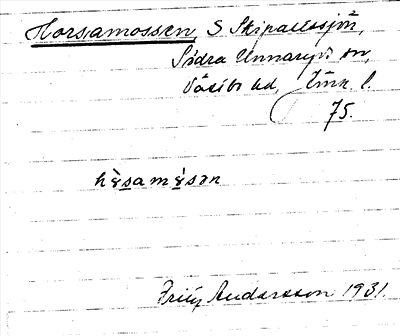 Horsamossen, S Skipaltasjön,
Södra Unnaryds sn,
Västbo hd, Jönk. l.
75.
Fritz Andersson 1931.